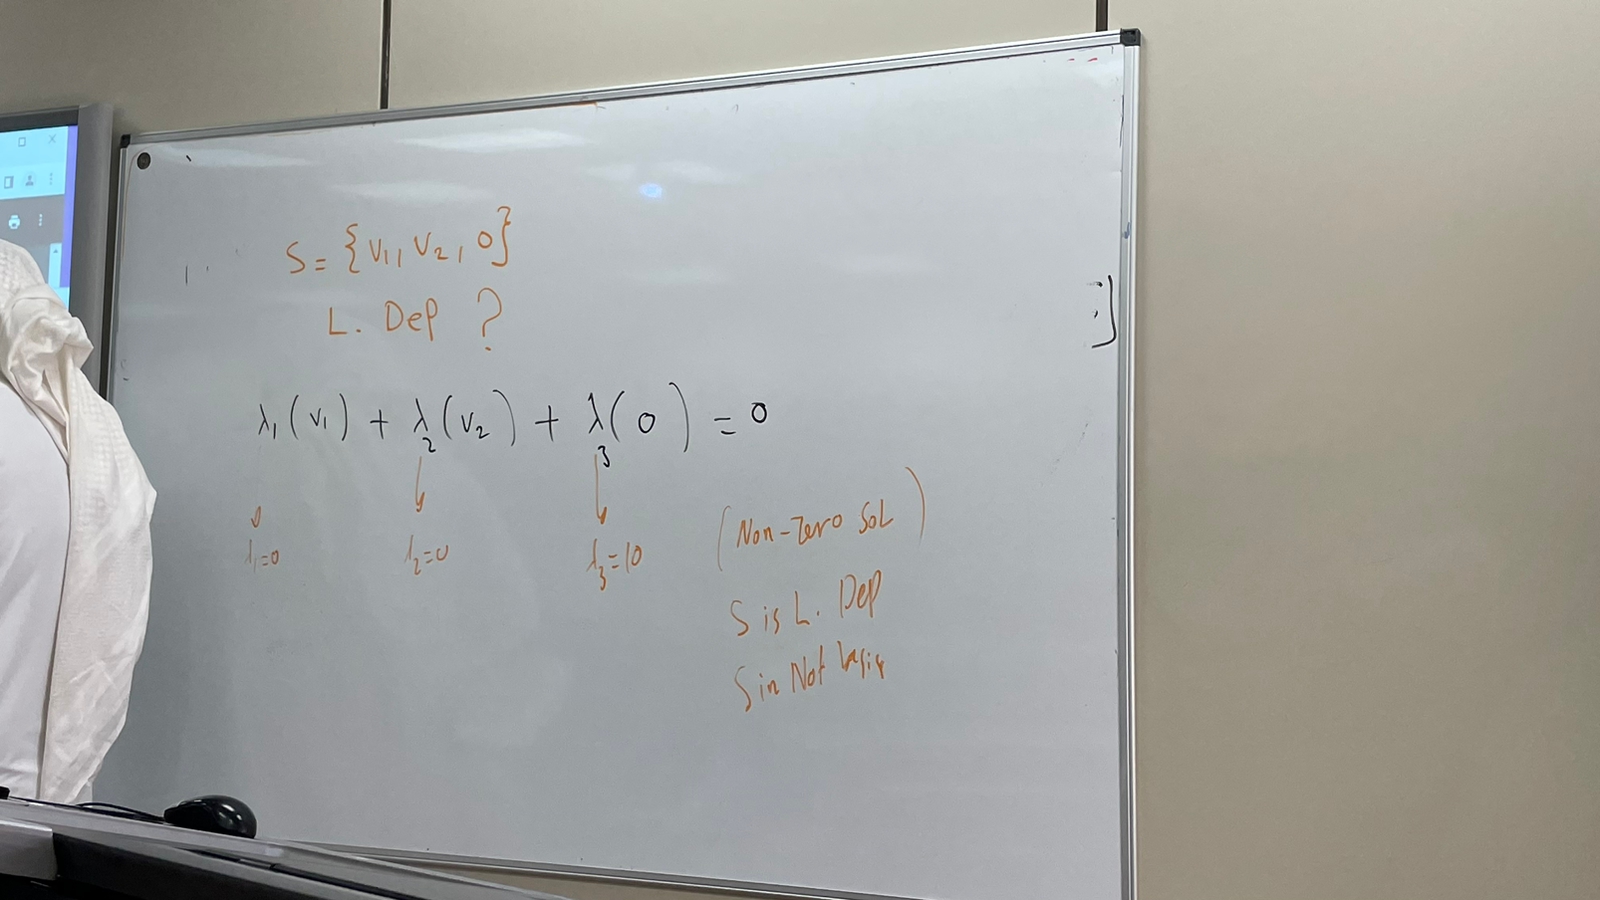 S = {v₁, v₂, 0}
L. Dep ?
λ₁(v₁) + λ₂(v₂) + λ₃(0) = 0
λ₁=0 λ₂=0 λ₃=10
(Non-Zero Sol)
S is L. Dep
S in Not basis